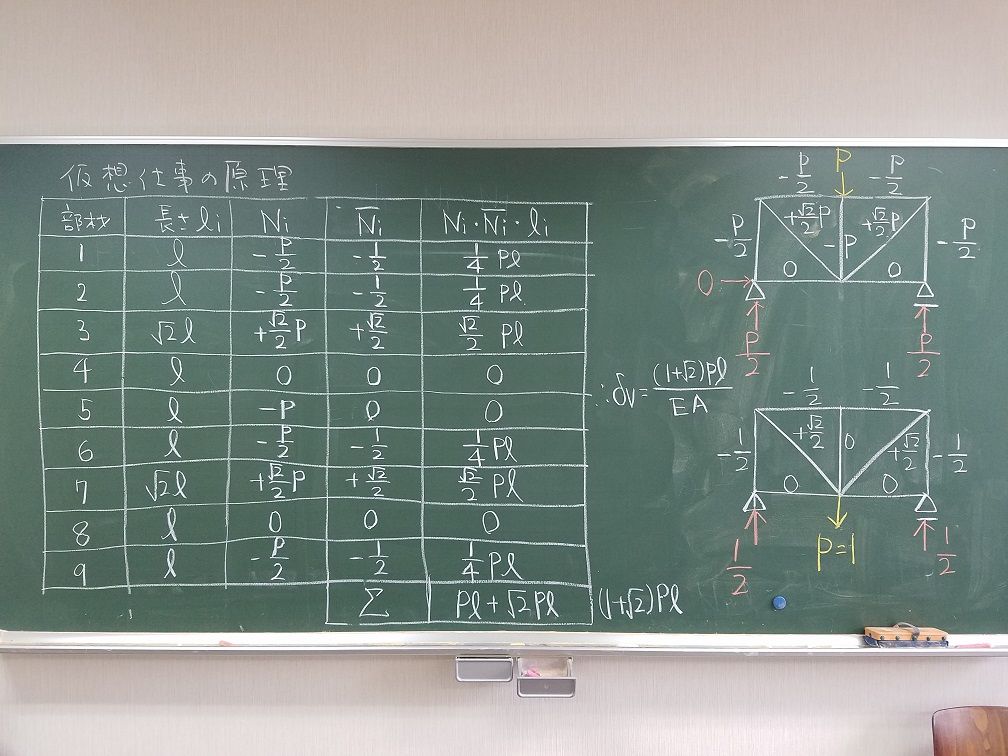 仮想仕事の原理
部材 長さli Ni N̄i Ni・N̄i・li
1 l -P/2 -1/2 1/4 Pl
2 l -P/2 -1/2 1/4 Pl
3 √2l +√2/2P +√2/2 √2/2 Pl
4 l 0 0 0
5 l -P 0 0
6 l -P/2 -1/2 1/4Pl
7 √2l +√2/2P +√2/2 √2/2 Pl
8 l 0 0 0
9 l -P/2 -1/2 1/4Pl
Σ Pl+√2Pl (1+√2)Pl
∴δv=(1+√2)Pl/EA
-P/2 P -P/2
-P/2 +√2/2P -P +√2/2P -P/2
0 0 0
P/2 P/2
-1/2 -1/2
-1/2 +√2/2 0 +√2/2 -1/2
0 0
1/2 P=1 1/2